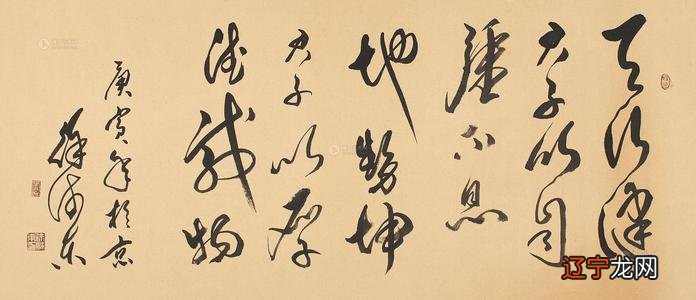 天行健
君子以自
强不息
地势坤
君子以厚
德载物
庚寅年于京
辽宁龙网